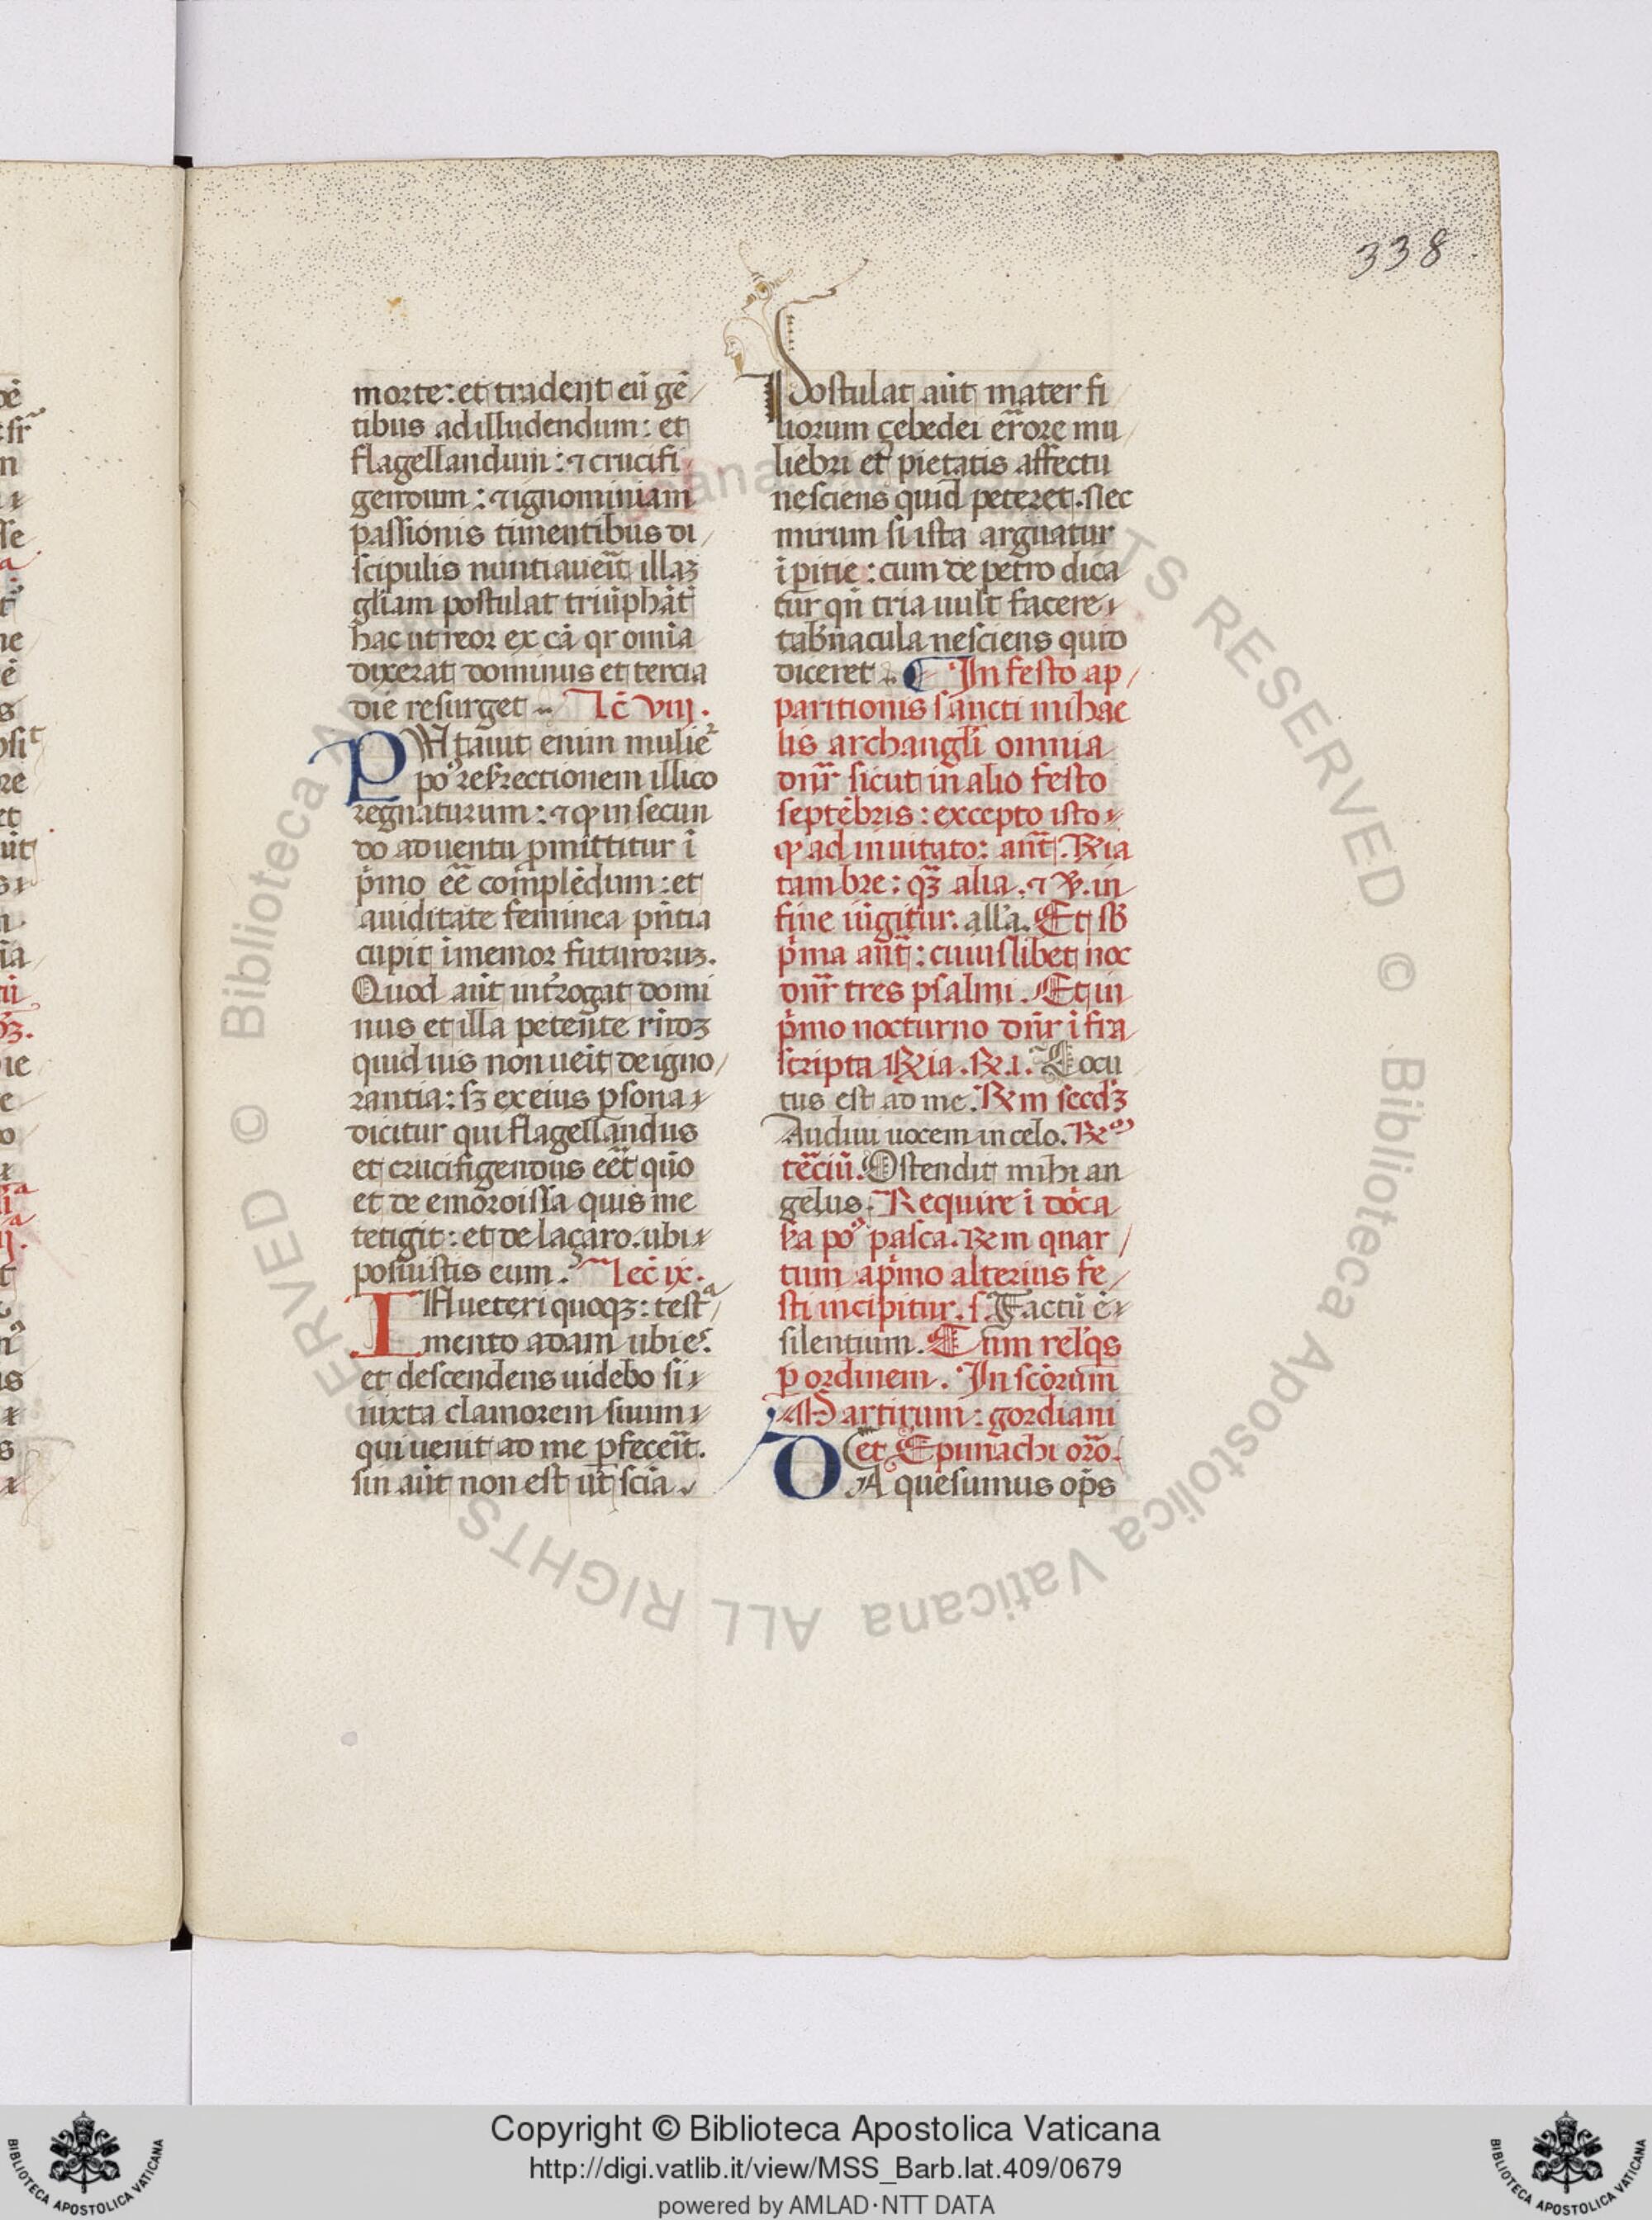 338
morte: et tradent eū gē/
tibus ad illudendum: et
flagellandum: ⁊ crucifi
gendum: ⁊ ignominiam
passionis timentibus di/
scipulis nuntiaueīt illaꝫ
gliam postulat triūphāt
hac ut reor ex cā qr omīa
dixerat dominus et tercia
die resurget.. lc̄ viij.
PUtauit enim mulie
po᷒ resrectionem illico
regnaturum: ⁊ ꝙ in secun
do aduentu pmittitur ī
pmo eē complēdum: et
auiditate feminea pn̄tia
cupit īmemor futuroruꝫ.
Quod aūt intrrogat domi
nus et illa petente rn̄dꝫ
quid uis non ueīt de igno/
rantia: sꝫ ex eius psona
dicitur qui flagellandus
et crucifigendus eēt quō
et de emoroissa quis me
tetigit: et de laçaro. ubi
posuistis eum. lec̄ ix.
IN ueteri quoqꝫ: testa
mento adam ubi es
et descendens uidebo si
iuxta clamorem suum
qui uenit ad me pfeceīt.
sin aūt non est ut sciā
Postulat aūt mater fi
liorum çebedei errore mu/
liebri et pietatis affectu
nesciens quid peteret. Nec
mirum si ista arguatur
īpitie: cum de petro dica
tur qn̄ tria uult facere
tabnacula nesciens quid
diceret.. ¶ In festo ap/
paritionis sancti mihae
lis archangli omnia
dnr sicut in alio festo
septēbris: excepto isto
ꝙ ad inuitato: ant. ℟ia
tam bre: qꝫ alia. ⁊ ℣. in
fine iūgitur. alla. Et sb
pma ant: cuiuslibet noc
dnr tres psalmi. Et in
pmo nocturno dnr ī fra
scripta ℟ia. ℟.1. Locu
tus est ad me. ℟m secdꝫ
Audiui uocem in celo. ℟m
terciū. Ostendit mihi an
gelus. Require ī doīca
po᷒ pasca. ℟m quar/
tum a pmo alterius fe/
sti incipitur. s. Factū ē
silentium. Tum relqs
p ordinem. In scōrum
Martirum: gordiani
et Epimachi orō.
DA quesumus ops
© Biblioteca Apostolica Vaticana ALL RIGHTS RESERVED
Copyright © Biblioteca Apostolica Vaticana
http://digi.vatlib.it/view/MSS_Barb.lat.409/0679
powered by AMLAD·NTT DATA
BIBLIOTECA APOSTOLICA VATICANA
BIBLIOTECA APOSTOLICA VATICANA